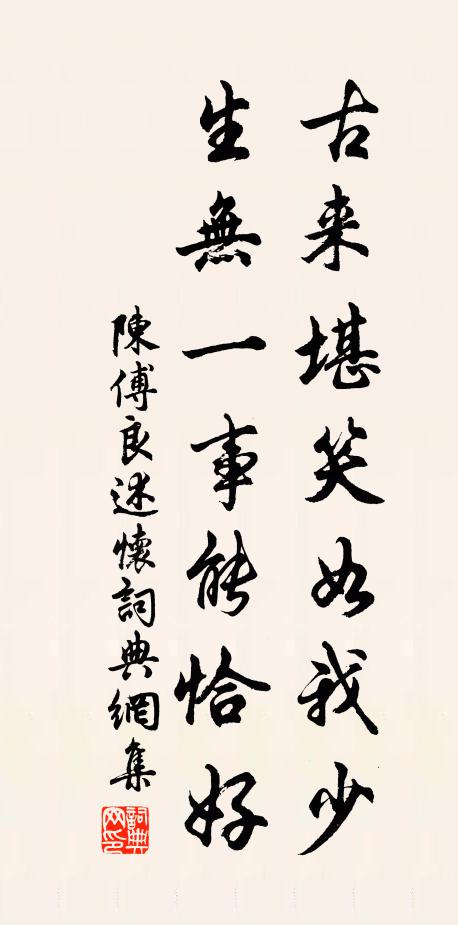 古来堪笑如我少
生無一事能恰好
陳傅良述懷詞典網集
詞典
网印